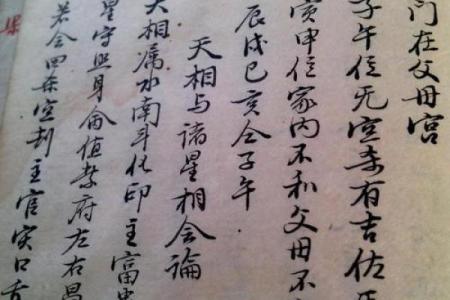 门在父母宫
子午位无空杀有吉佐
寅申位家内不和父母不
辰戌巳亥仝子午
天相与诸星相会論
天相属水南斗化印主富
星守照身命值紫府左右昌
若会四杀空刼主官灾口舌